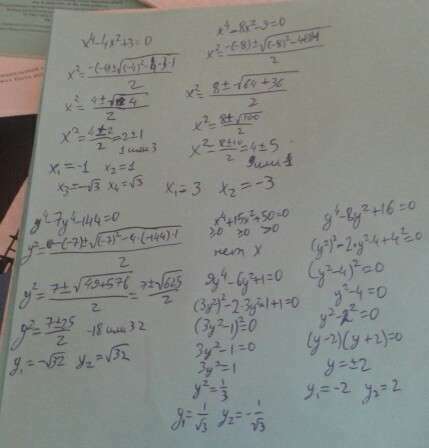 x⁴-4x²+3=0
x²=(-(-4)±√((-4)²-4·3·1))/2
x²=(4±√4)/2
x²=(4±2)/2=2±1
1 или 3
x₁=-1 x₂=1
x₃=-√3 x₄=√3
x⁴-8x²-9=0
x²=8±√(64+36)/2
x²=8±√100/2
x²=(8±10)/2=4±5
x₁=3 x₂=-3
y⁴-7y²-144=0
y²=(-(-7)±√((-7)²-4·(-144)·1))/2
y²=(7±√(49+576))/2=(7±√625)/2
y²=(7±25)/2 -18 или 32
y₁=-√32 y₂=√32
x⁴+15x²+50=0
≥0 ≥0 >0
нет x
9y⁴-6y²+1=0
(3y²)²-2·3y²·1+1=0
(3y²-1)²=0
3y²-1=0
3y²=1
y²=1/3
y₁=1/√3 y₂=-1/√3
y⁴-8y²+16=0
(y²)²-2·y²·4+4²=0
(y²-4)²=0
y²-4=0
y²-2²=0
(y-2)(y+2)=0
y=±2
y₁=-2 y₂=2